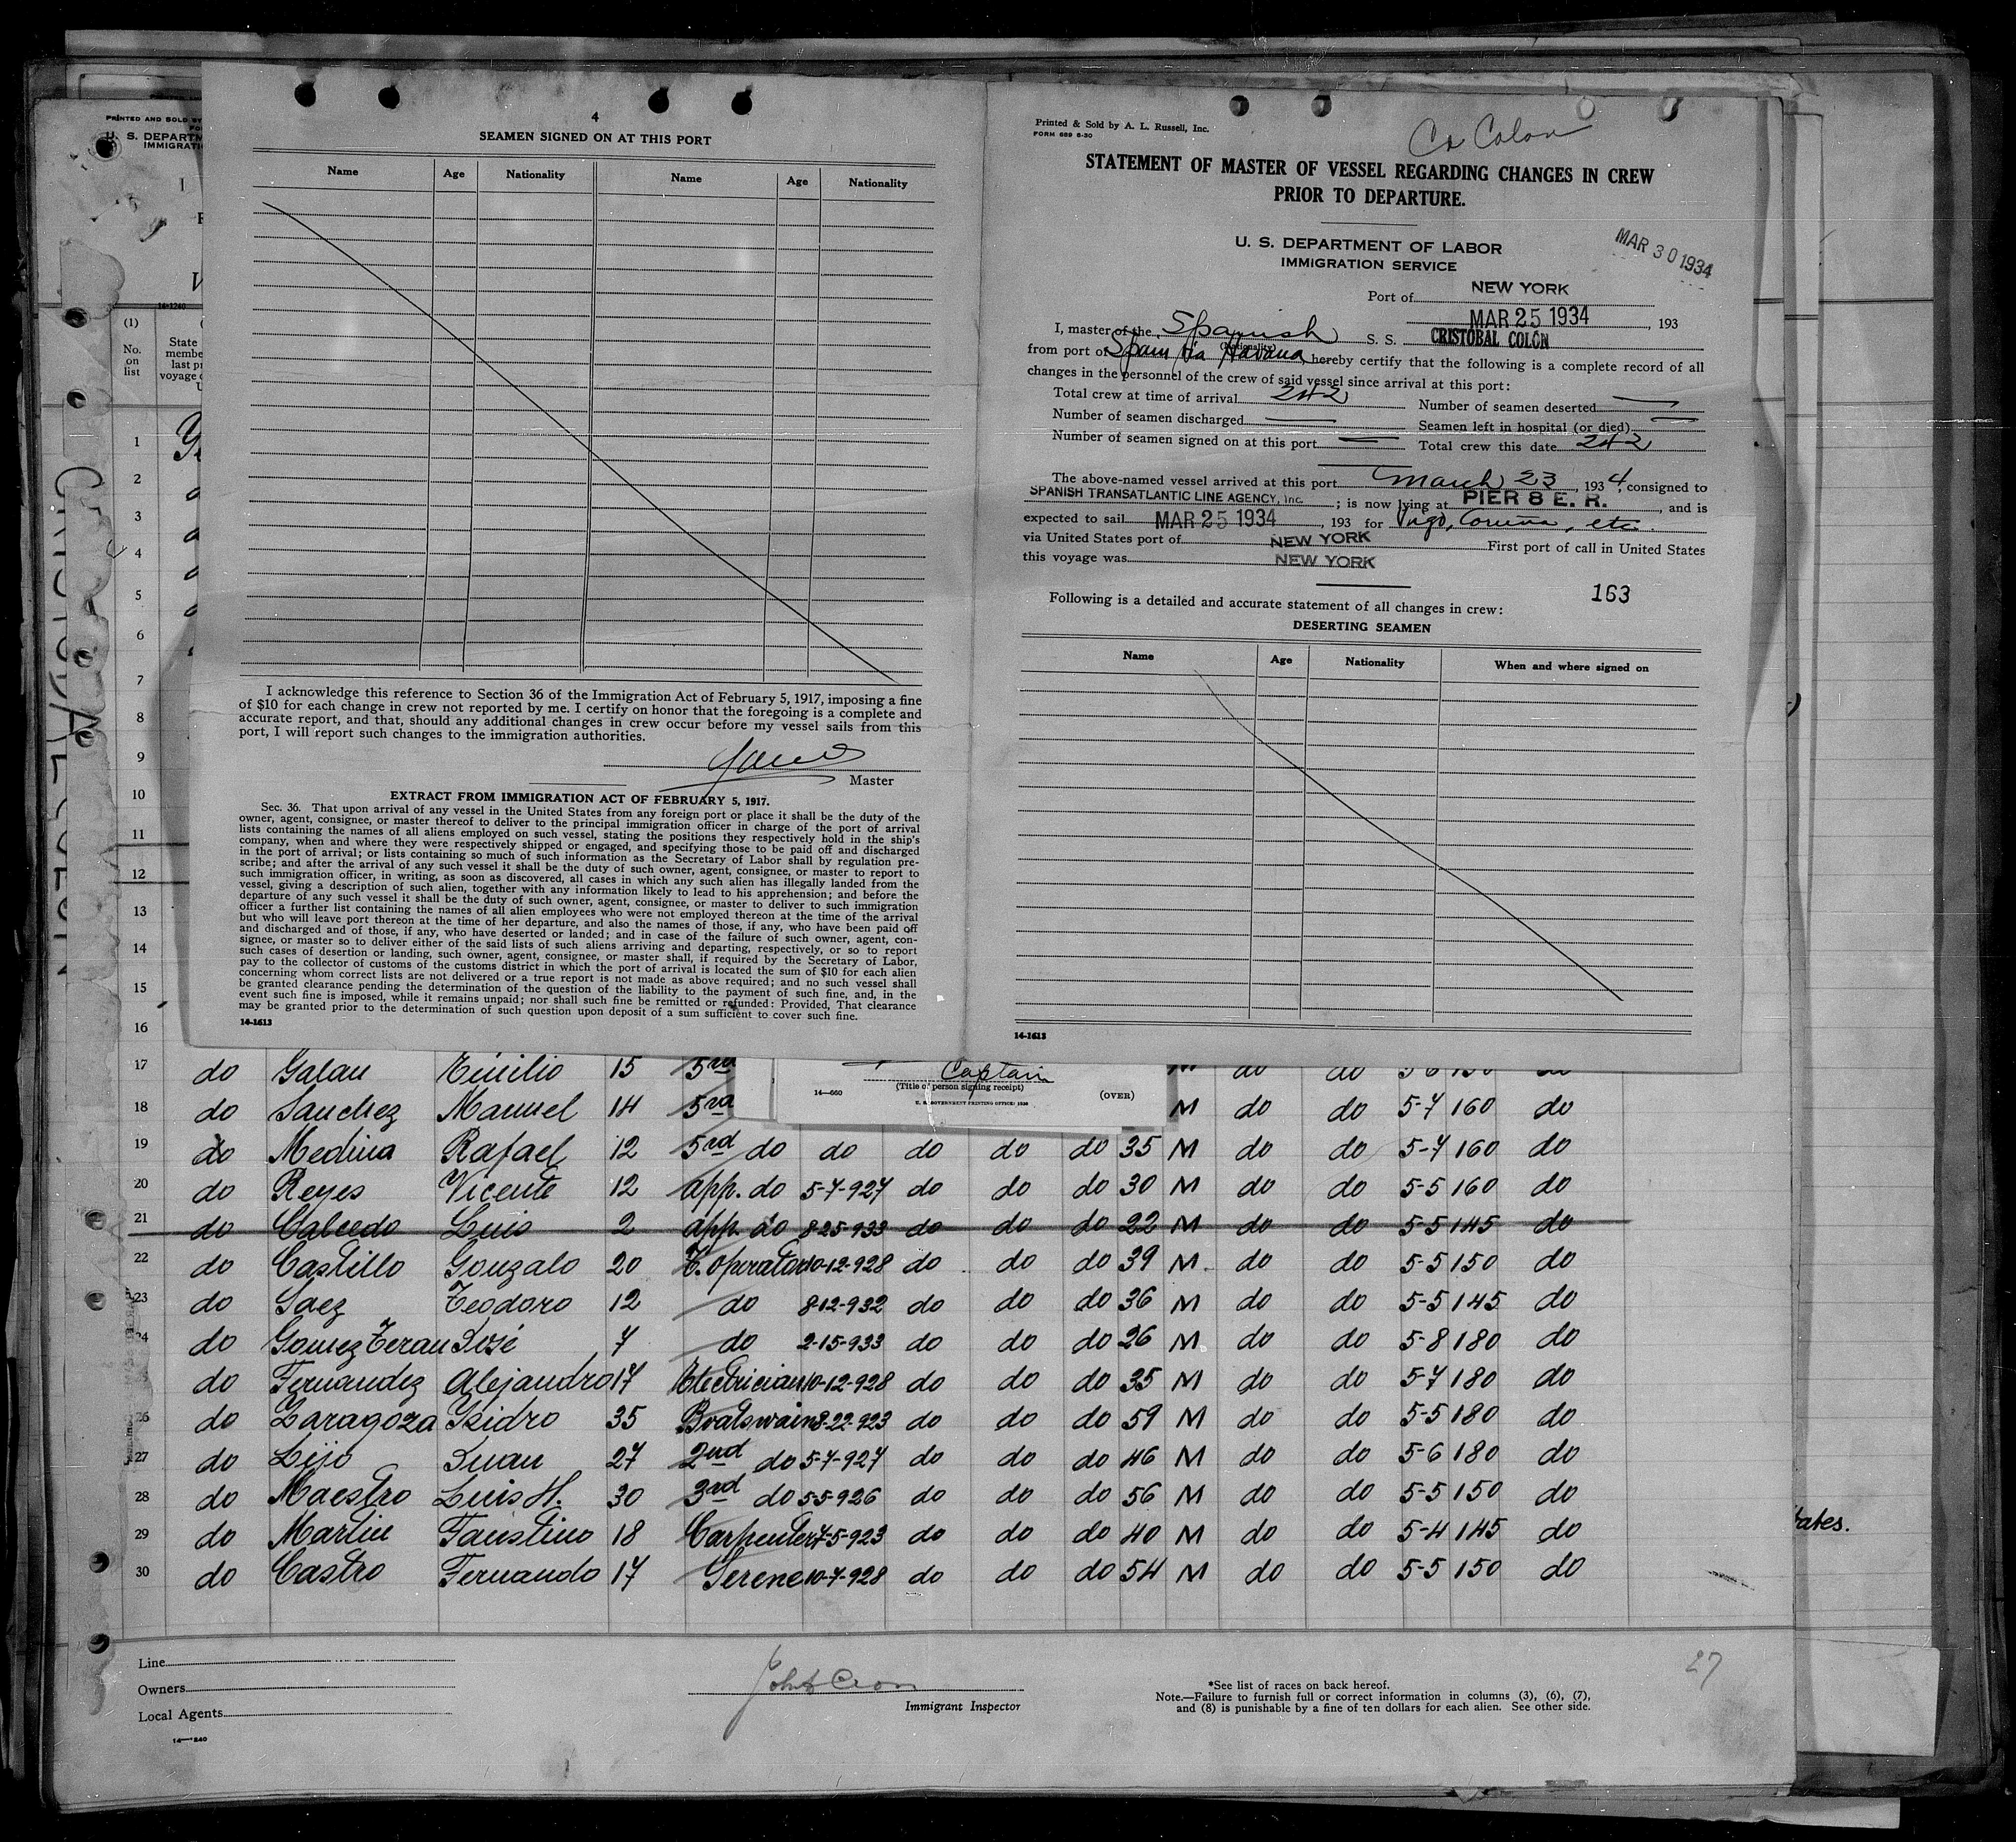 4
SEAMEN SIGNED ON AT THIS PORT
Name Age Nationality Name Age Nationality
I acknowledge this reference to Section 36 of the Immigration Act of February 5, 1917, imposing a fine
of $10 for each change in crew not reported by me. I certify on honor that the foregoing is a complete and
accurate report, and that, should any additional changes in crew occur before my vessel sails from this
port, I will report such changes to the immigration authorities.
Master
EXTRACT FROM IMMIGRATION ACT OF FEBRUARY 5, 1917.
Sec. 36. That upon arrival of any vessel in the United States from any foreign port or place it shall be the duty of the
owner, agent, consignee, or master thereof to deliver to the principal immigration officer in charge of the port of arrival
lists containing the names of all aliens employed on such vessel, stating the positions they respectively hold in the ship's
company, when and where they were respectively shipped or engaged, and specifying those to be paid off and discharged
in the port of arrival; or lists containing so much of such information as the Secretary of Labor shall by regulation pre-
scribe; and after the arrival of any such vessel it shall be the duty of such owner, agent, consignee, or master to report to
such immigration officer, in writing, as soon as discovered, all cases in which any such alien has illegally landed from the
vessel, giving a description of such alien, together with any information likely to lead to his apprehension; and before the
departure of any such vessel it shall be the duty of such owner, agent, consignee, or master to deliver to such immigration
officer a further list containing the names of all alien employees who were not employed thereon at the time of the arrival
but who will leave port thereon at the time of her departure, and also the names of those, if any, who have been paid off
and discharged and of those, if any, who have deserted or landed; and in case of the failure of such owner, agent, con-
signee, or master so to deliver either of the said lists of such aliens arriving and departing, respectively, or so to report
such cases of desertion or landing, such owner, agent, consignee, or master shall, if required by the Secretary of Labor,
pay to the collector of customs of the customs district in which the port of arrival is located the sum of $10 for each alien
concerning whom correct lists are not delivered or a true report is not made as above required; and no such vessel shall
be granted clearance pending the determination of the question of the liability to the payment of such fine, and, in the
event such fine is imposed, while it remains unpaid; nor shall such fine be remitted or refunded: Provided, That clearance
may be granted prior to the determination of such question upon deposit of a sum sufficient to cover such fine.
14-1613
Printed & Sold by A. L. Russell, Inc.
FORM 689 6-30
Co Colon
STATEMENT OF MASTER OF VESSEL REGARDING CHANGES IN CREW
PRIOR TO DEPARTURE.
U. S. DEPARTMENT OF LABOR
IMMIGRATION SERVICE
MAR 30 1934
Port of NEW YORK
MAR 25 1934, 193
I, master of the Spanish S. S. CRISTOBAL COLON
(Nationality)
from port of Spain via Havana, hereby certify that the following is a complete record of all
changes in the personnel of the crew of said vessel since arrival at this port:
Total crew at time of arrival 242 Number of seamen deserted —
Number of seamen discharged — Seamen left in hospital (or died) —
Number of seamen signed on at this port — Total crew this date 242
The above-named vessel arrived at this port March 23, 1934, consigned to
SPANISH TRANSATLANTIC LINE AGENCY, Inc.; is now lying at PIER 8 E. R., and is
expected to sail MAR 25 1934, 193 for Vigo, Coruña, etc.
via United States port of NEW YORK First port of call in United States
this voyage was NEW YORK
163
Following is a detailed and accurate statement of all changes in crew:
DESERTING SEAMEN
Name Age Nationality When and where signed on
14-1613
PRINTED AND SOLD BY
U. S. DEPARTM
IMMIGRATI
14-1240
(1)
No. on list
State
membe
last pr
voyage
CRISTOBAL COLON
1
2
3
4
5
6
7
8
9
10
11
12
13
14
15
16
Captain
(Title of person signing receipt)
14—660 (OVER)
U. S. GOVERNMENT PRINTING OFFICE: 1928
17 do Galan Emilio 15 5rd
18 do Sanchez Manuel 14 5rd M do do 5-7 160 do
19 do Medina Rafael 12 5rd do do do do do 35 M do do 5-7 160 do
20 do Reyes Vicente 12 app. do 5-7-927 do do do 30 M do do 5-5 160 do
21 do Calcedo Luis 2 app. do 8-25-933 do do do 22 M do do 5-5 145 do
22 do Castillo Gonzalo 20 T. operator 10-12-928 do do do 39 M do do 5-5 150 do
23 do Saez Teodoro 12 do 8-12-932 do do do 36 M do do 5-5 145 do
24 do Gomez Teran José 7 do 2-15-933 do do do 26 M do do 5-8 180 do
do Fernandez Alejandro 17 Electrician 10-12-928 do do do 35 M do do 5-7 180 do
26 do Zaragoza Isidro 35 Boatswain 8-22-923 do do do 59 M do do 5-5 180 do
27 do Lijo Juan 27 2nd do 5-7-927 do do do 46 M do do 5-6 180 do
28 do Maestro Luis H. 30 3rd do 5-5-926 do do do 56 M do do 5-5 150 do
29 do Martin Faustino 18 Carpenter 7-5-923 do do do 40 M do do 5-4 145 do
30 do Castro Fernando 17 Serene 10-7-928 do do do 54 M do do 5-5 150 do
tates.
Line
Owners
Local Agents
Immigrant Inspector
*See list of races on back hereof.
Note.—Failure to furnish full or correct information in columns (3), (6), (7),
and (8) is punishable by a fine of ten dollars for each alien. See other side.
27